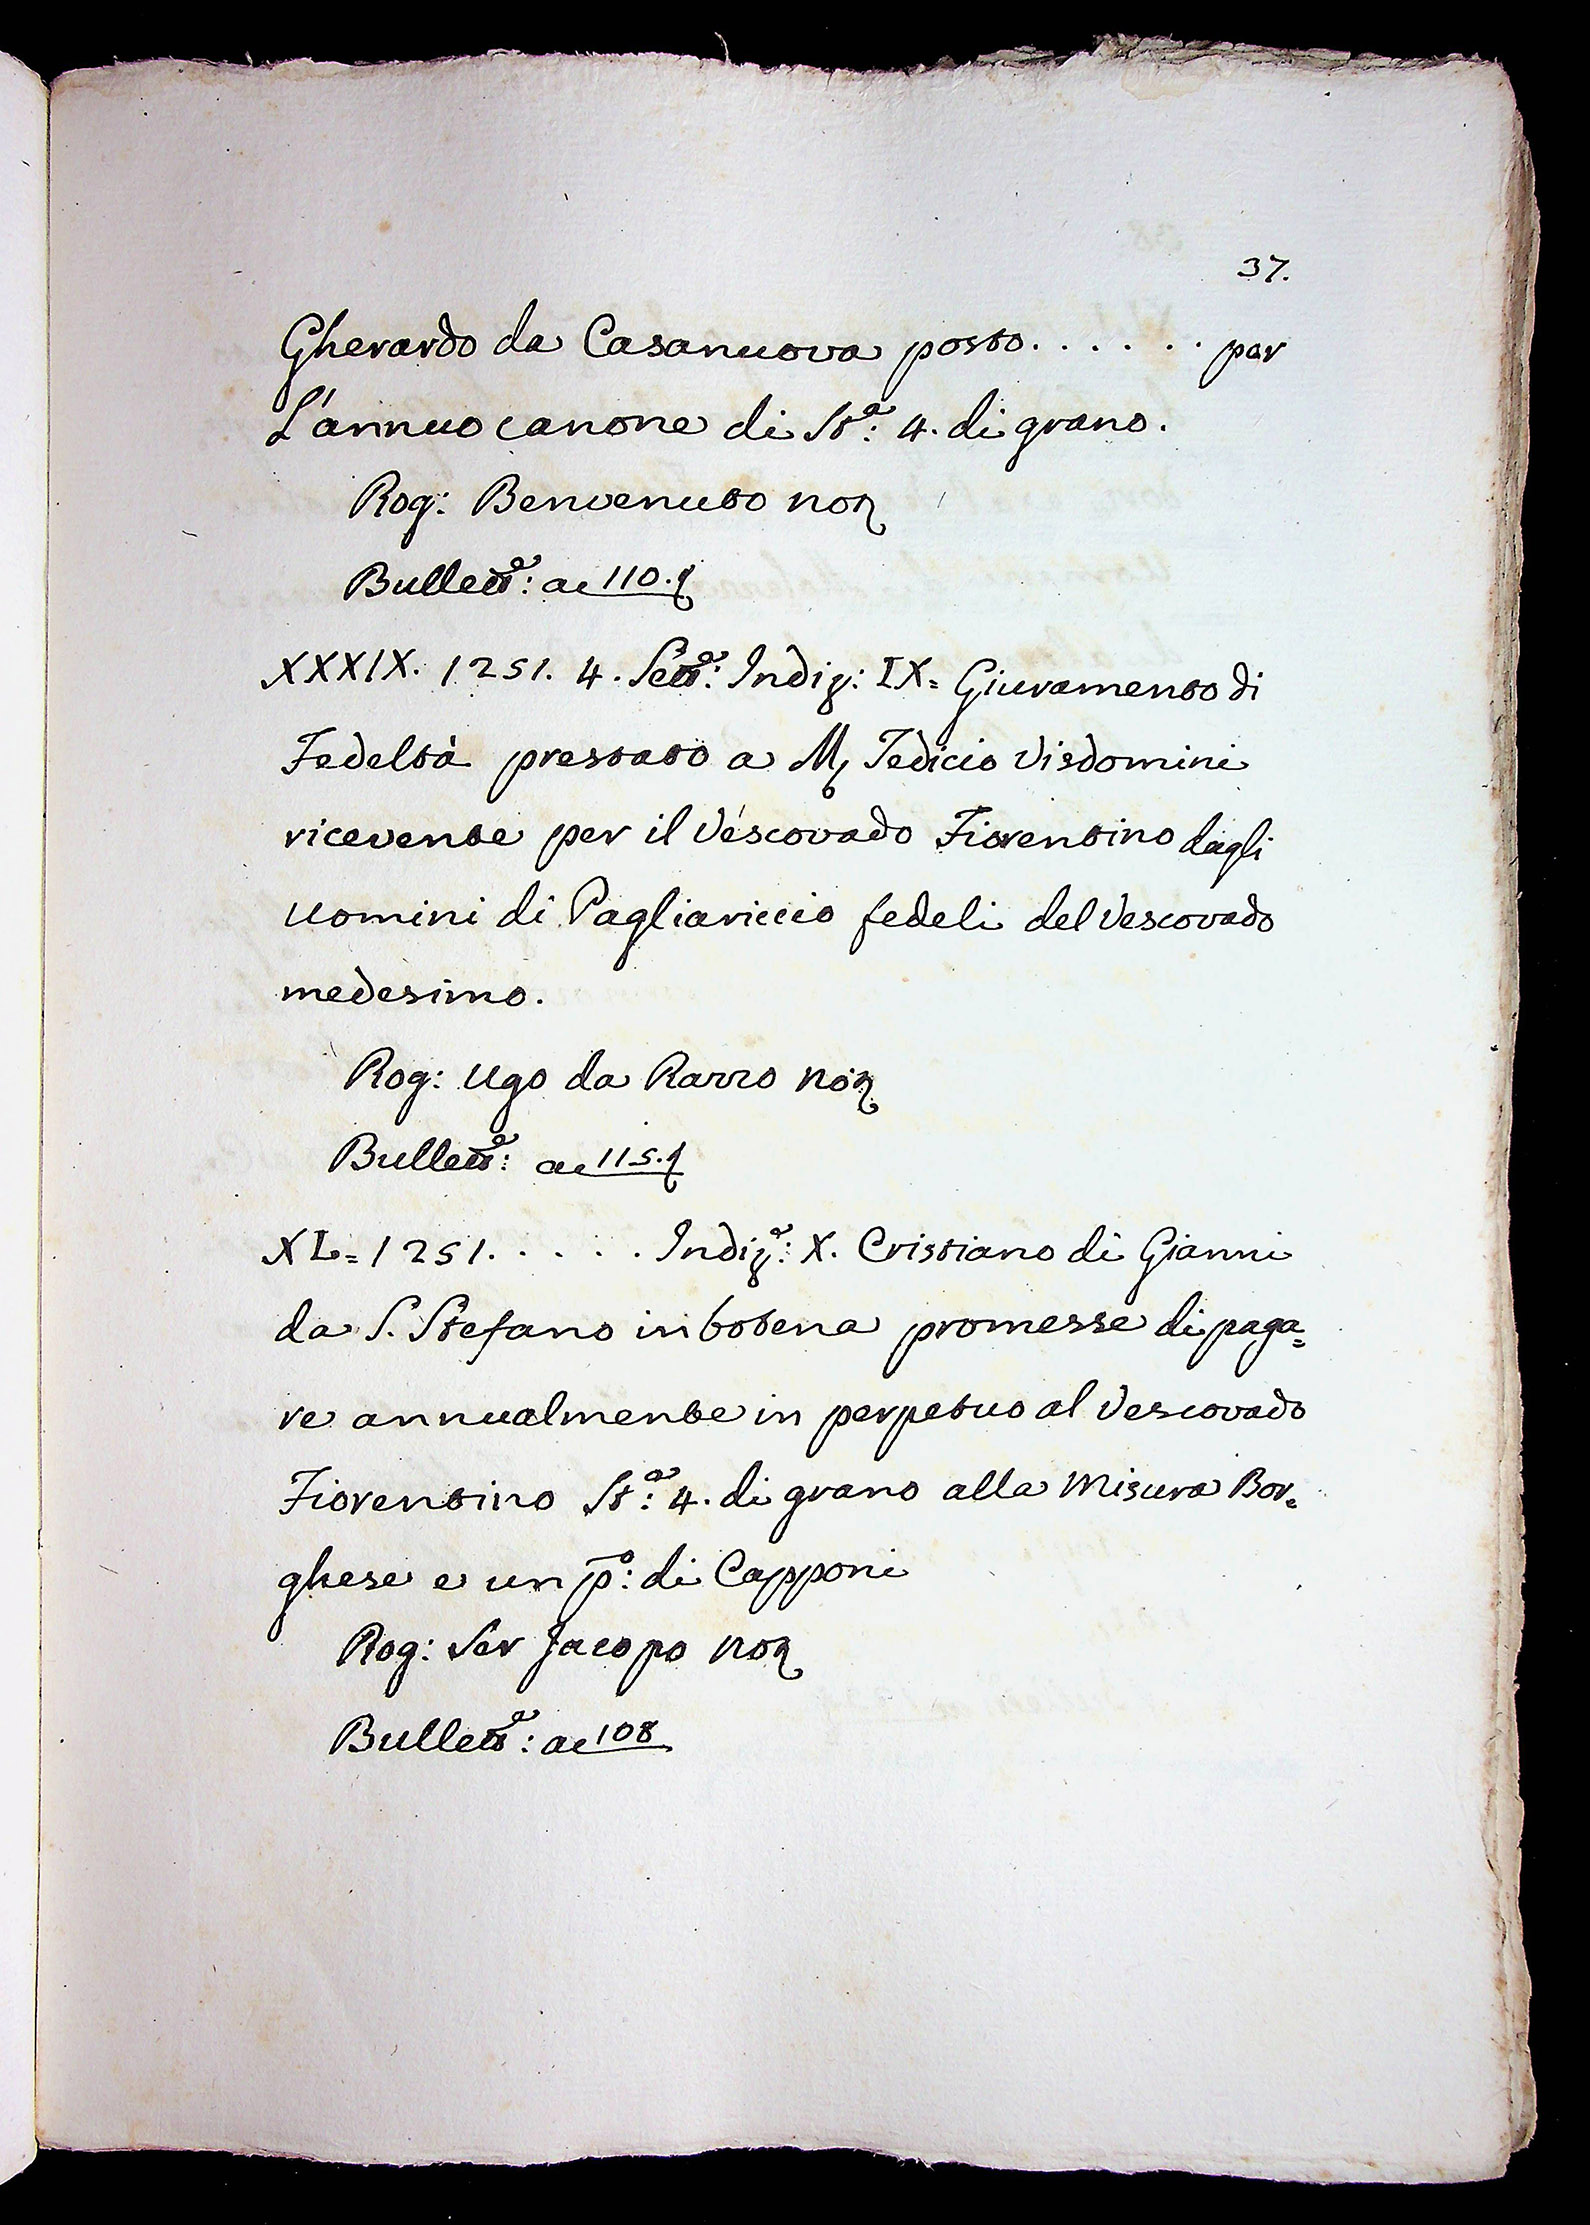 37.
Gherardo da Casanuova posto . . . . . . per
L'annuo canone di St.ª: 4. di grano.
Rog: Benvenuto not
Bullett.ª: ac 110.t
XXXIX. 1251. 4. Sett.e: Indiz: IX= Giuramento di
Fedeltà prestato a M. Tedicio Visdomini
ricevente per il Vescovado Fiorentino dagli
Uomini di Pagliariccio fedeli del Vescovado
medesimo.
Rog: Ugo da Razzo not
Bullett.ª: ac 115.t
XL= 1251. . . . . . Indiz.e: X. Cristiano di Gianni
da S. Stefano in botena promesse di paga=
re annualmente in perpetuo al Vescovado
Fiorentino St.ª: 4. di grano alla Misura Bor=
ghese e un p.o: di Capponi
Rog: Ser Jacopo not
Bullett.ª: ac 108